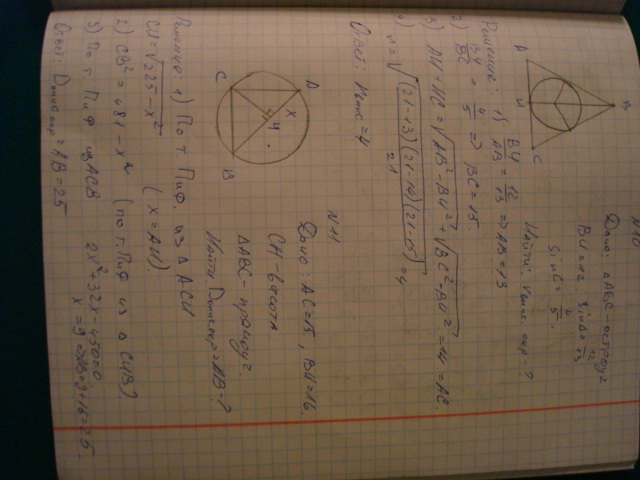 N10
Дано: ΔABC - остроуг
BH=12 sinA=12/13
sinC=4/5
Найти: rвпис. окр. ?
B
A H C
Решение: 1) BH/AB = 12/13 => AB=13
2) BH/BC = 4/5 => BC=15.
3) AH+HC=√AB²-BH²+√BC²-BH²=14=AC.
4) r=√(21-13)(21-14)(21-15)/21=4
Ответ: rвпис=4
N11
Дано: AC=15, BH=16
CH-высота
ΔABC-прямоуг.
Найти Dопис.окр=AB-?
A
X
H
C
B
Решение: 1) По т. Пиф. из ΔACH
CH=√225-x² (x=AH)
2) CB²=481-x² (по т. Пиф из Δ CHB)
3) По т. Пиф из ACB 2x²+32x-450=0
x=9 =>AB=9+16=25.
Ответ: Dопис окр=AB=25